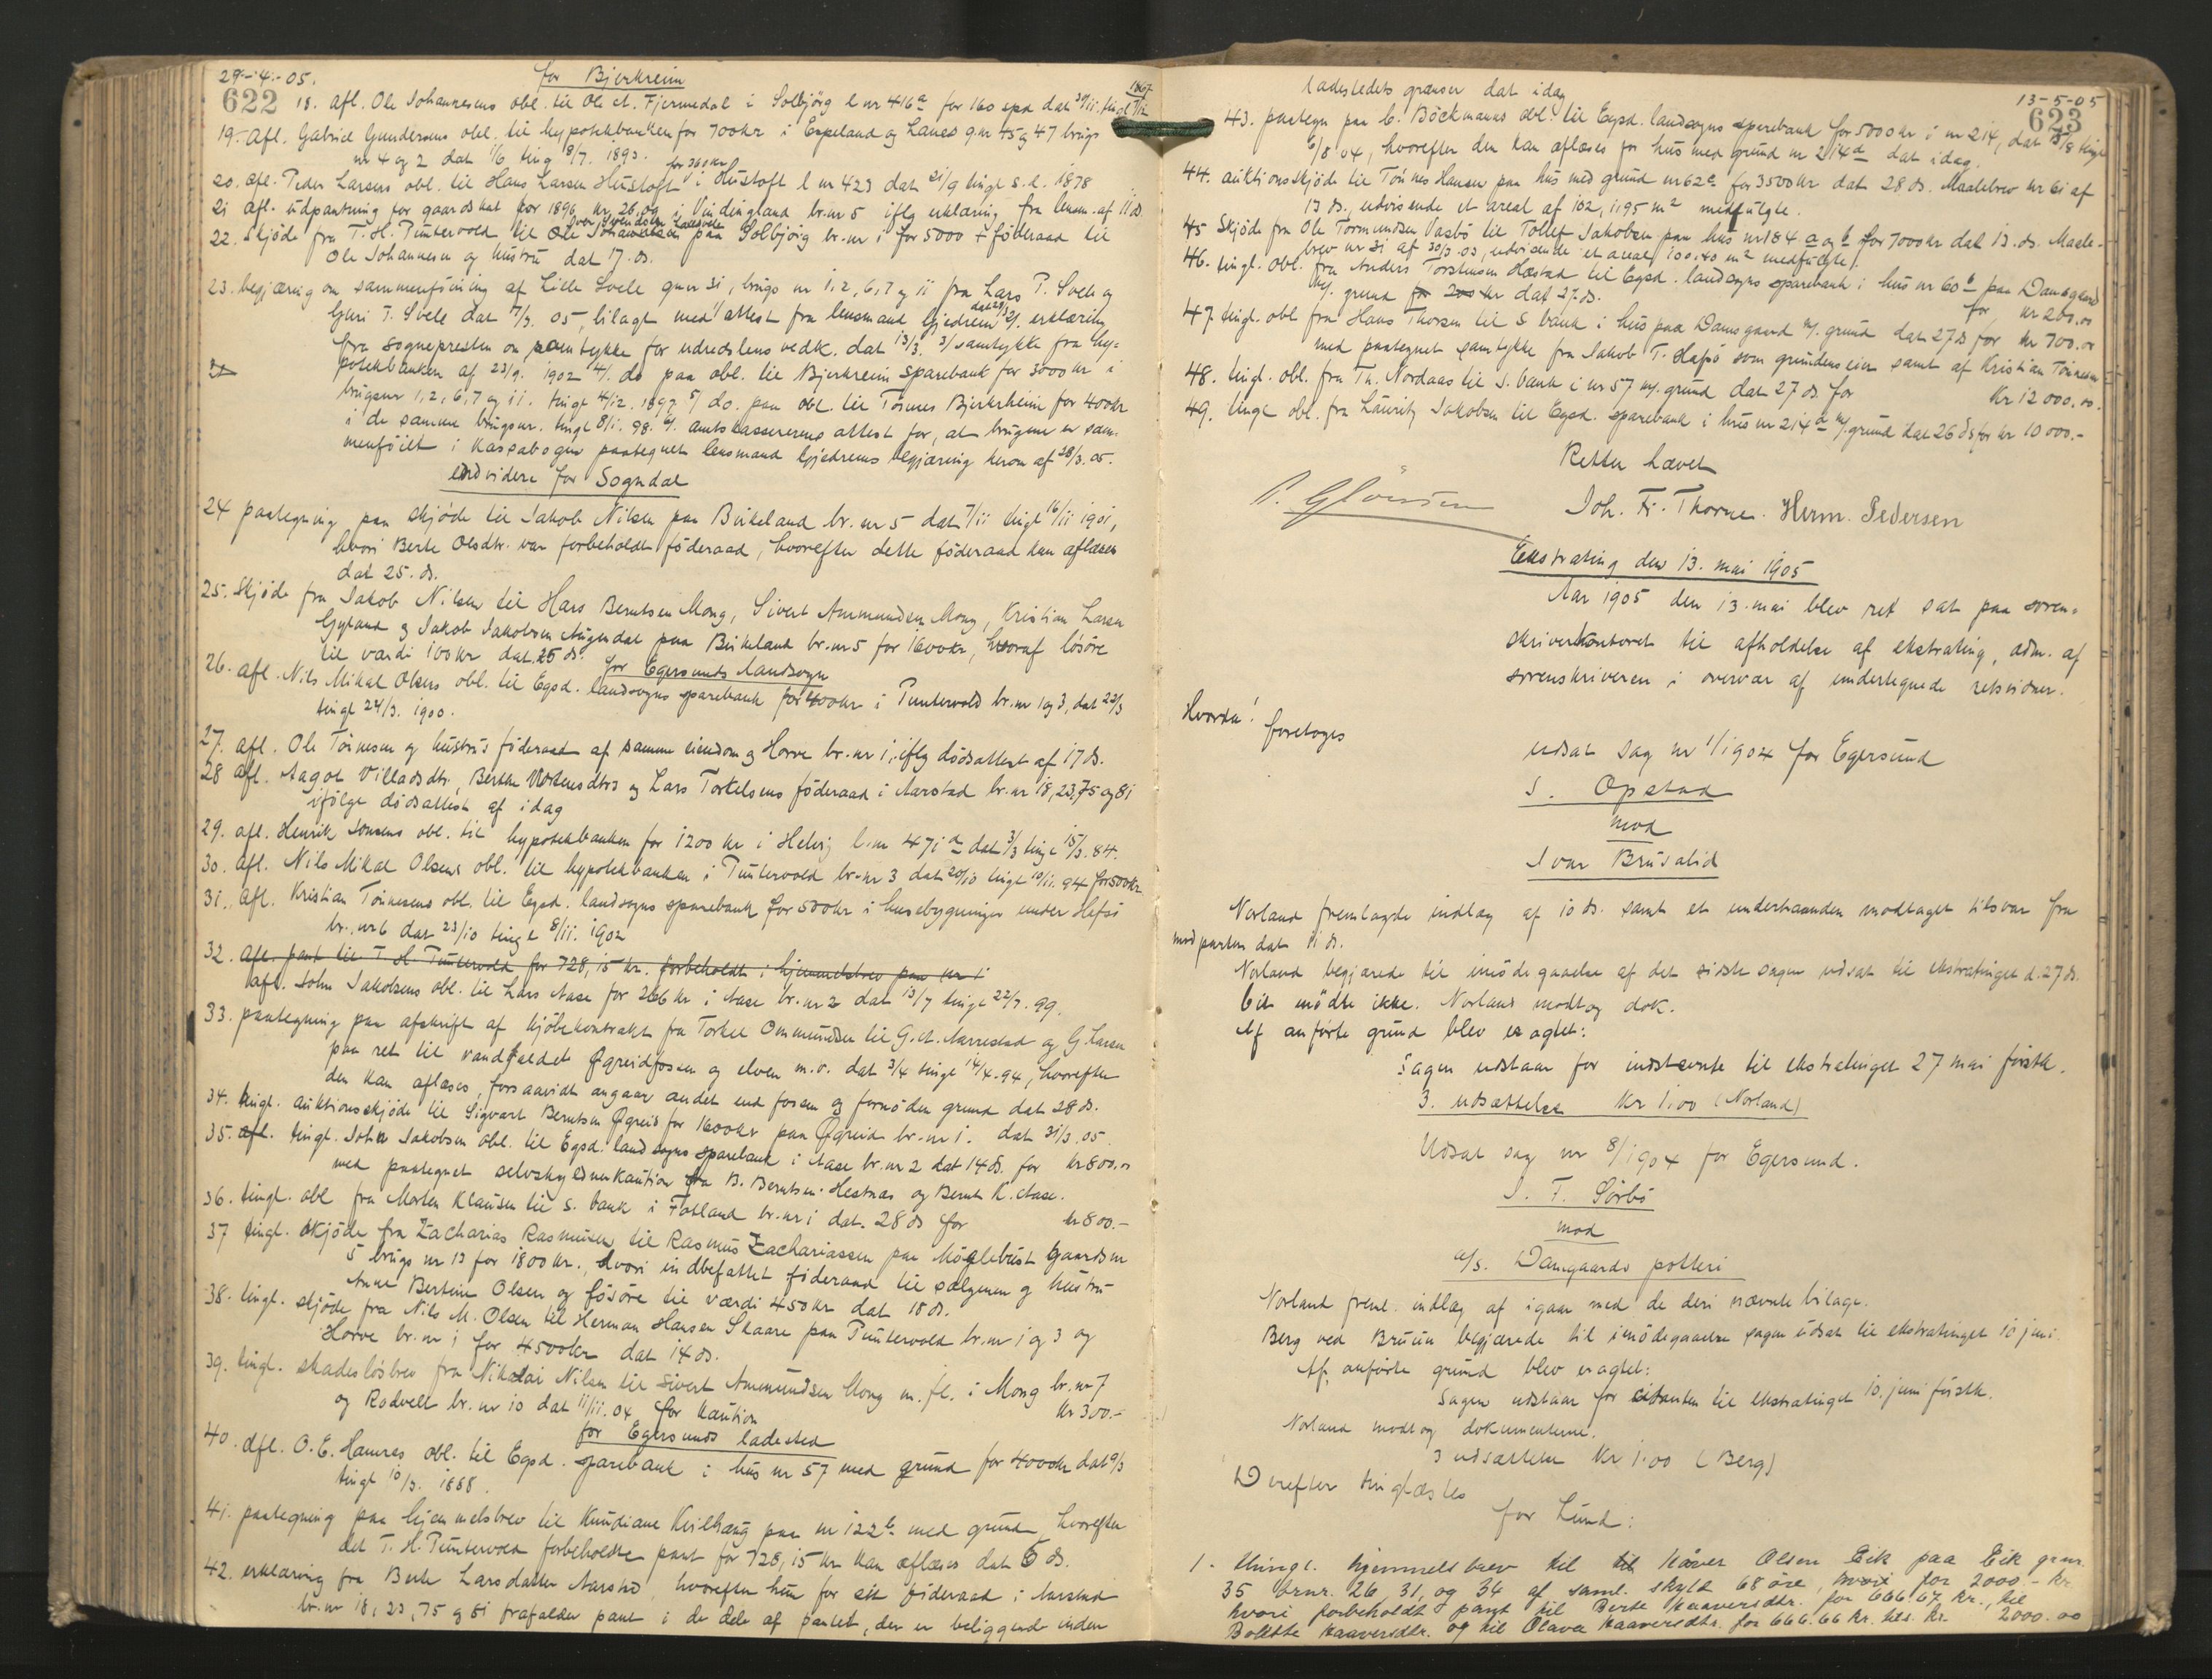 29-4-05.
for Bjerkreim
622
18. afl. Ole Johannesens obl. til Ole A. Fjermedal i Solbjörg l nr 416a for 160 spd dat 30/11 tingl 7/12 1867
19. afl. Gabriel Gundersens obl. til hypotekbanken for 700 kr i Espeland og Lanes g.nr 45 og 47 brugs
nr 4 og 2 dat 1/6 ting 8/7. 1893.
for 360 kr
20. afl. Peder Larsens obl. til Hans Larsen Hustoft i Hustoft l nr 423 dat 21/9 tingl s.d. 1878
21 afl. udpantning for gaardskat for 1896 kr 26,09 i Vindingland br.nr 5 iflg erklæring fra lensm. af 11 ds.
22. Skjöde fra T. H. Puntervold til Ole Johannesen paa Solbjörg br.nr 1 for 5000 + föderaad til
Ole Johannesen og hustru dat 17. ds.
23. begjæring om sammenföining af Lille Svele gnr 31, brugs nr 1, 2, 6, 7 og 11 fra Lars P. Svele og
Guri T. Svele dat 7/3. 05, bilagt med 1/ attest fra lensmand Gjedrem dat 28/3 2/. erklæring
fra sognepresten om samtykke for udredslens vedk. dat 13/3. 3/ samtykke fra hy-
potekbanken af 23/9. 1902 4/. do paa obl. til Bjerkreim sparebank for 3000 kr i
brugsnr 1, 2, 6, 7 og 11. tingl 4/12. 1897. 5/ do. paa obl. til Tönnes Bjerkrheim for 400 kr
i de samme brugsnr. tingl 8/11. 98. 6/. amtskassererens attest for, at brugene er sam-
menföiet i kassabogen paategnet lensmand Gjedrems begjæring herom af 28/3. 05.
endvidere for Sogndal
24 paategning paa skjöde til Jakob Nilsen paa Birkeland br. nr 5 dat 7/11 tingl 16/11 1901,
hvori Berte Olsdtr. var forbeholdt föderaad, hvorefter dette föderaad kan aflæses
dat 25. ds.
25. Skjöde fra Jakob Nilsen til Hans Berntsen Mong, Sivert Ammundsen Mong, Kristian Larsen
Gyland og Jakob Jakobsen Augendal paa Birkeland br.nr 5 for 1600 kr, hvoraf lösöre
til værdi 100 kr dat. 25 ds.
for Egersunds landsogn
26. afl. Nils Mikal Olsens obl. til Egsd. landsogns sparebank for 400 kr i Puntervold br.nr 1 og 3, dat 22/3
tingl 24/3. 1900.
27. afl. Ole Tönnesen og hustrus föderaad af samme eiendom og Horve br.nr 1, iflg dödsattest af 17 ds.
28 afl. Aagot Villadsdtr, Berthe Mortensdtrs og Lars Torkelsens föderaad i Aarstad br.nr 18, 23, 75 og 81
ifölge dödsattest af idag
29. afl. Henrik Jonsens obl. til hypotekbanken for 1200 kr i Helvig l.nr 471 a dat 3/3 tingl 15/3. 84.
30. afl. Nils Mikal Olsens obl. til hypotekbanken i Puntervold br.nr 3 dat 20/10 tingl 10/11. 94 for 500 kr.
31. afl. Kristian Tönnesens obl. til Egsd. landsogns sparebank for 500 kr i husebygninger under Hafsö
br. nr 6 dat 23/10 tingl 8/11. 1902
32. afl. pant til T. H. Puntervold for 728,15 kr. forbeholdt i hjemmelsbrev paa nr 1
afl. John Jakobsens obl. til Lars Aase for 266 kr i Aase br.nr 2 dat 13/7 tingl 22/7. 99.
33. paategning paa afskrift af kjöbekontrakt fra Torkel Ommundsen til G. A. Aarrestad og G. Larsen
paa ret til vandfaldet Øgreidfossen og elven m.v. dat 3/4 tingl 14/4. 94, hvorefter
den kan aflæses, forsaavidt angaar andet end fossen og fornöden grund dat 28 ds.
34. tingl. auktionsskjöde til Sigvart Berntsen Øgreid for 1600 kr paa Øgreid br.nr 1. dat 31/3. 05.
35. afl. tingl. John Jakobsen obl. til Egsd. landsogns sparebank i Aase br.nr 2 dat 14 ds. for kr 800.00
med paategnet selvskyldnerkaution fra B. Berntsen Hestnes og Bernt K. Aase.
36. tingl. obl fra Morten Klausen til s. bank i Fotland br.nr 1 dat. 28 ds for kr 800.-
37 tingl. skjöde fra Zacharias Rasmusen til Rasmus Zachariassen paa Möglebust Gaardsnr
5 brugs nr 13 for 1800 kr., hvori indbefattet föderaad til sælgeren og hustru
Anne Bertine Olsen og lösöre til værdi 450 kr dat 18 ds.
38. tingl. skjöde fra Nils M. Olsen til Herman Hansen Skaare paa Puntervold br.nr 1 og 3 og
Horve br.nr 1 for 4500 kr dat 14 ds.
39. tingl. skadeslösbrev fra Nikolai Nilsen til Sivert Ammundsen Mong m. fl. i Mong br.nr 7
og Rodvelt br.nr 10 dat 11/11. 04 for kaution kr 300.-
for Egersunds ladested
40. afl. O. E. Hamres obl. til Egsd. sparebank i hus nr 57 med grund for 4000 kr dat 9/3
tingl 10/3. 1888.
41. paategning paa hjemmelsbrev til Kundiane Kvilhaug paa nr 122 b med grund, hvorefter
det T. H. Puntervold forbeholdte pant for 728,15 kr kan aflæses dat 6 ds.
42. erklæring fra Berte Larsdatter Aarstad, hvorefter hun for sit föderaad i Aarstad
br.nr 18, 23, 75 og 81 frafalder pant i de dele af pantet, der er beliggende inden
ladestedets grænser dat idag
13-5-05
623
43. paategn paa C. Böckmanns obl. til Egsd. landsogns sparebank for 5000 kr i nr 214, dat 5/8 tingl
6/8 04, hvorefter den kan aflæses for hus med grund nr 214 d dat idag.
44. auktionsskjöde til Tönnes Hansen paa hus med grund nr 62 a for 3500 kr dat 28 ds. Maalebrev nr 61 af
13 ds., udvisende et areal af 102,195 m² medfulgte.
45 Skjöde fra Ole Tormundsen Vasbö til Tollef Jakobsen paa hus nr 184 a og b for 7000 kr dat 13. ds. Maale-
brev nr 31 af 30/3 03, udvisende et areal 100,40 m² medfulgte.
46. tingl. obl. fra Anders Torstensen Hæstad til Egsd. landsogns sparebank i hus nr 60 b paa Damsgaard
m/. grund for 200 kr dat 27. ds. for kr 200.00
47. tingl. obl fra Hans Thorsen til s bank i hus paa Damsgaard m/. grund dat 27 ds for kr 700.00
med paategnet samtykke fra Jakob T. Hafsö som grundens eier samt af Kristian Tönnesen
48. tingl. obl. fra Th. Nordaas til s. bank i nr 57 m/. grund dat 27 ds. for kr 12 000.00.
49. tingl obl. fra Lauritz Jakobsen til Egsd. sparebank i hus nr 214 d m/. grund dat 26 ds for kr 10 000.-
Retten hævet
Joh. Fr. Thorne. Herm. Pedersen
Ekstrating den 13. mai 1905
Aar 1905 den 13. mai blev ret sat paa soren-
skriverkontoret til afholdelse af ekstrating, adm. af
sorenskriveren i overvær af undertegnede retsvidner.
Hvorda!
foretoges
udsat sag nr 1/1904 for Egersund
S. Opstad
mod
Ivar Brusalid
Norland fremlagde indlæg af 10 ds. samt et underhaanden modtaget tilsvar fra
modparten dat 11 ds.
Norland begjærede til imödegaaelse af det sidste sagen udsat til ekstratinget d. 27 ds.
Cit mödte ikke. Norland modtog dok.
Af anförte grund blev eragtet:
Sagen udstaar for indstevnte til ekstratinget 27 mai förstk.
3. udsættelse kr 1.00 (Norland)
Udsat sag nr 8/1904 for Egersund.
S. T. Sörbö
mod
a/s. Damgaards potteri
Norland freml. indlæg af igaar med de deri nævnte bilage.
Berg ved Bruun begjærede til imödegaaelse sagen udsat til ekstratinget 10 juni.
Af anförte grund blev eragtet:
Sagen udstaar for citanten til ekstratinget 10. juni förstk.
Norland modtog dokumenterne.
3 udsættelse kr 1.00 (Berg)
Derefter tinglæstes
for Lund:
1. thingl. hjemmelsbrev til til Kåver Olsen Eik paa Eik gnr.
35 brnr. 26, 31, og 34 af saml. skyld 68 öre, hvori for 2000.- kr
hvori forbeholdt pant til Berte Kaaversdtr. for 666.67 kr., til
Bolette Kaaversdtr. og til Olava Kaaversdtr. for 666.66 kr. tils. kr. 2000.00